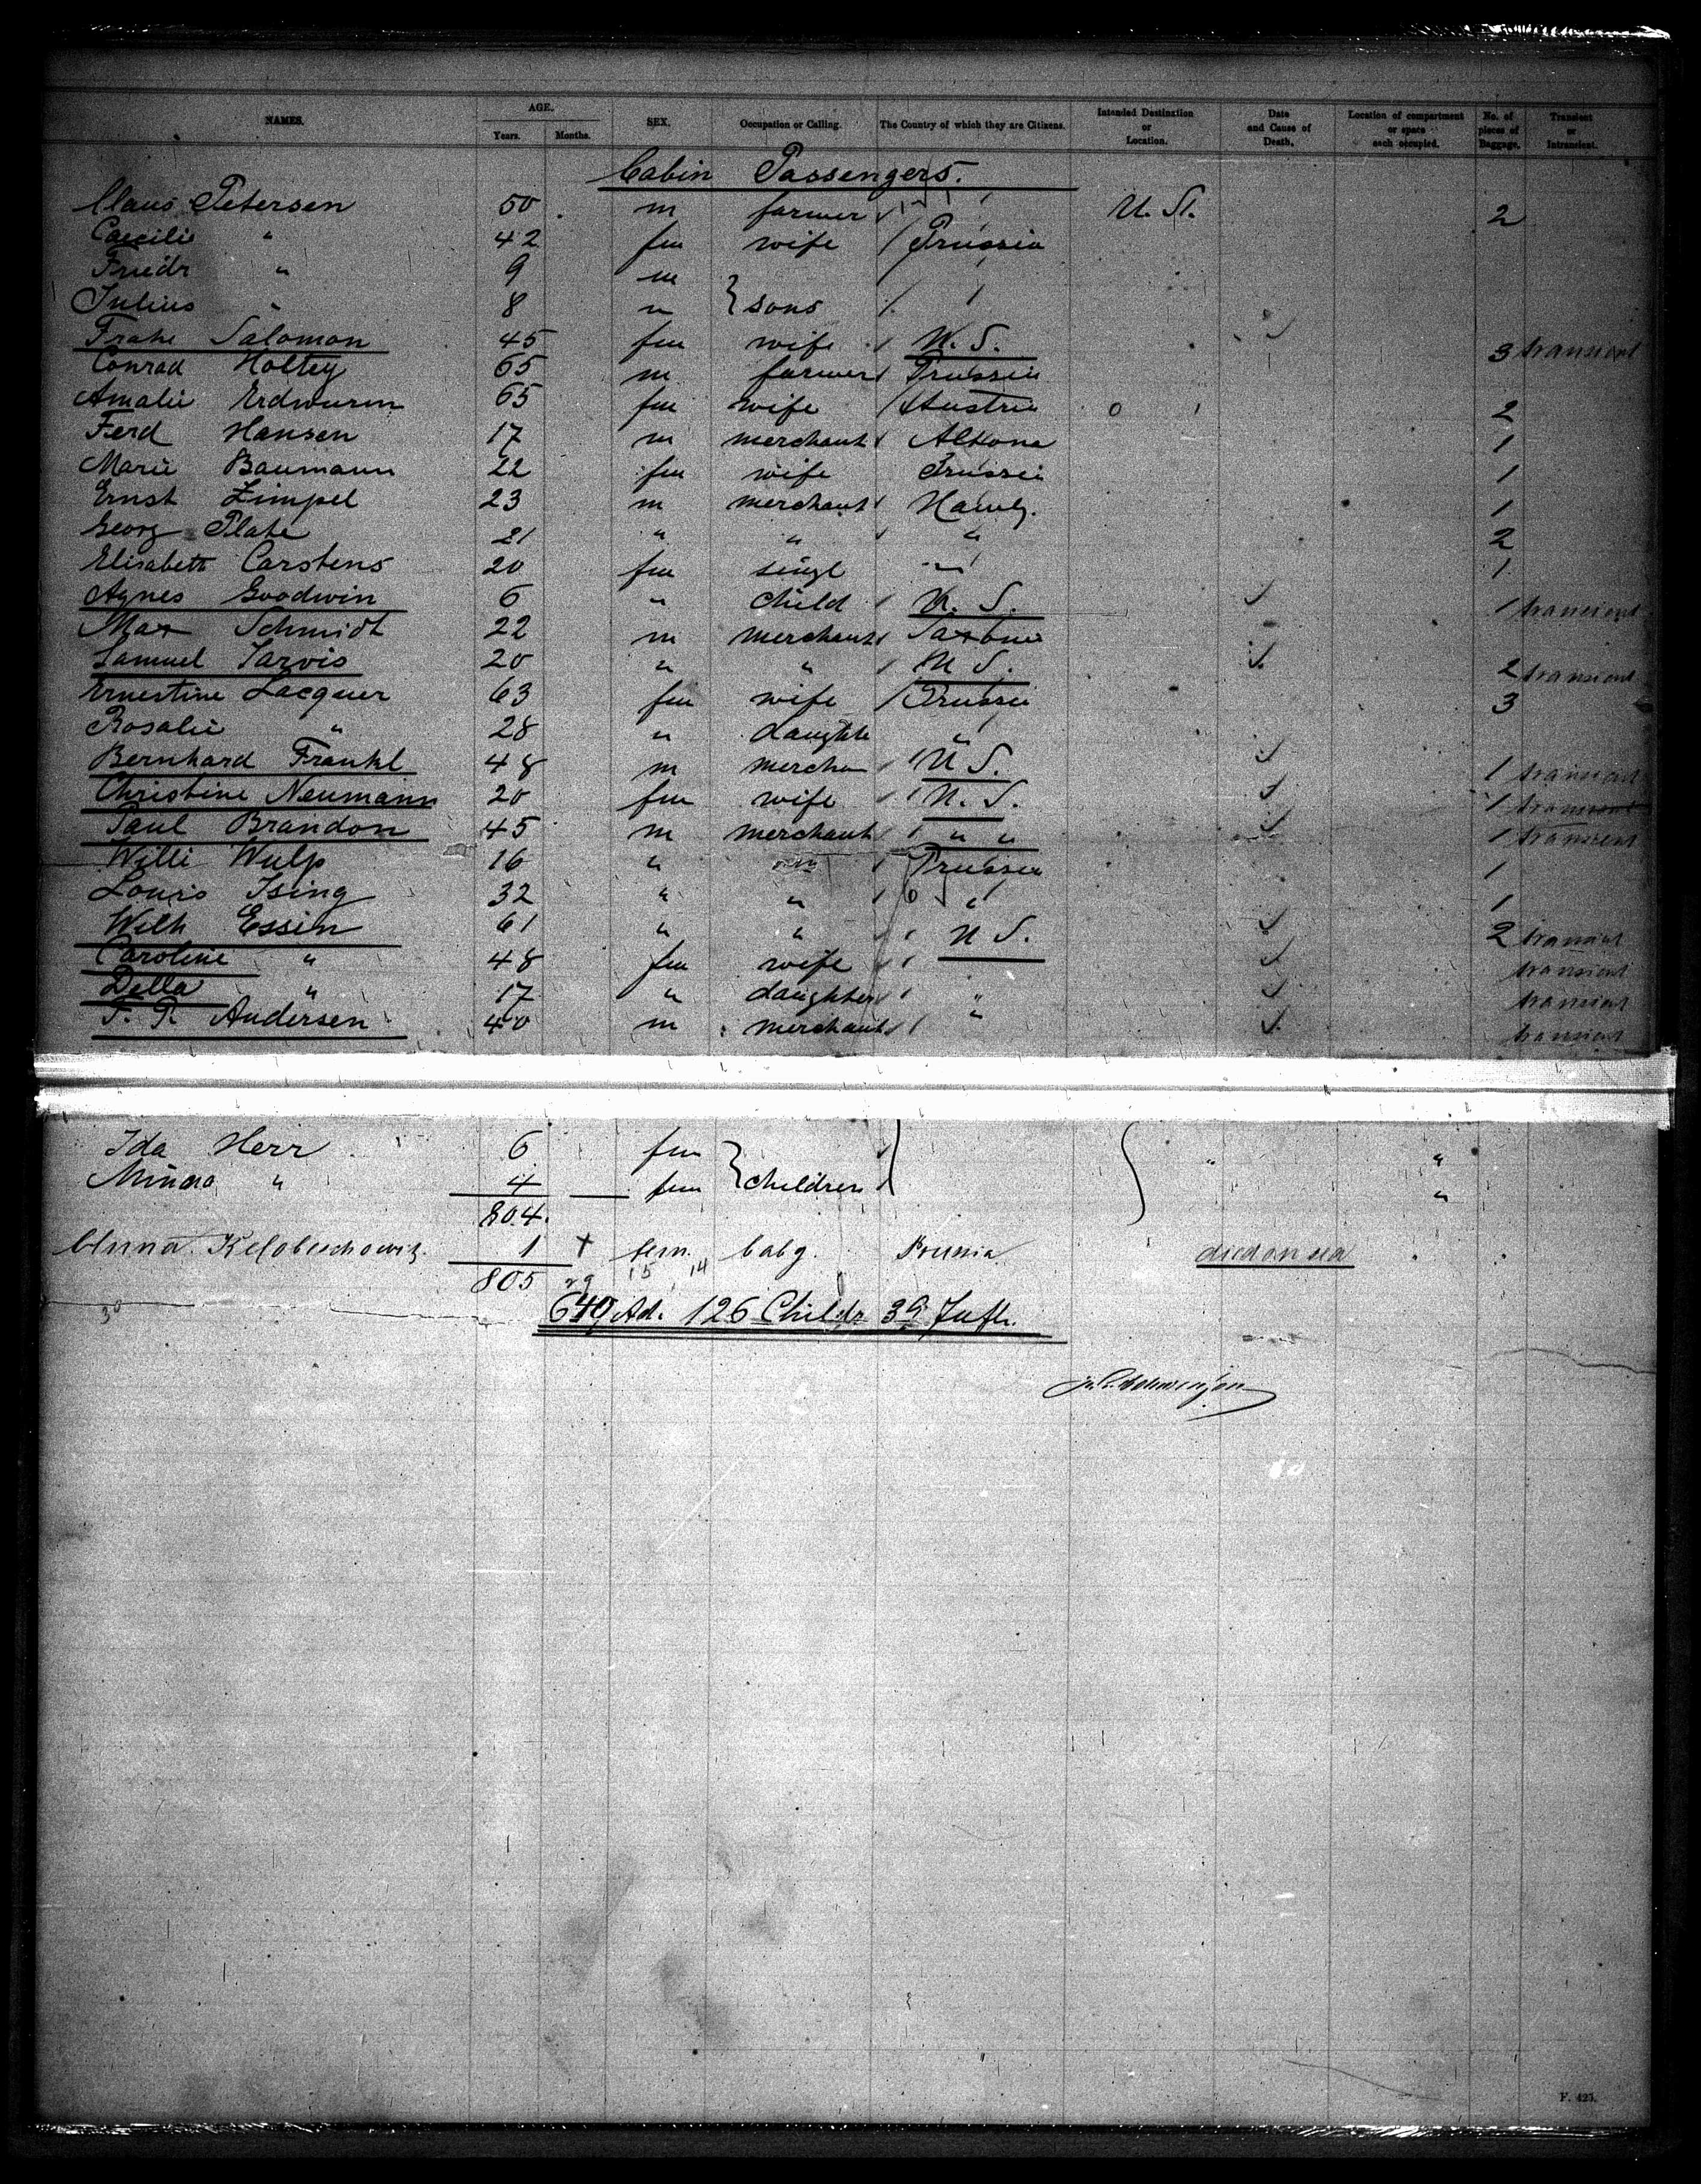 NAMES. AGE. Years. Months. SEX. Occupation or Calling. The Country of which they are Citizens. Intended Destination or Location. Date and Cause of Death. Location of compartment or space each occupied. No. of pieces of Baggage. Transient or Intransient.
Cabin Passengers.
Claus Petersen 50 m farmer U. St. 2
Caecilie " 42 fm wife Prussia
Friedr " 9 m
Julius " 8 " } sons
Frahe Salomon 45 fm wife U. S. 3 transient
Conrad Holtey 65 m farmer Prussia
Amalie Erdwurm 65 fm wife Austria 2
Ferd Hansen 17 m merchant Altona 1
Marie Baumann 22 fm wife Prussia 1
Ernst Zimpel 23 m merchant Hambg. 1
Georg Plate 21 " " " 2
Elisabett Carstens 20 fm singl " 1
Agnes Goodwin 6 " child U. S. 1 transient
Max Schmidt 22 m merchant
Samuel Jarvis 20 " " U S. 2 transient
Ernestine Lacquer 63 fm wife Prussia 3
Rosalie " 28 " daughte "
Bernhard Frankl 48 m mercha U S. 1 transient
Christine Neumann 20 fm wife U. S. 1 transient
Paul Brandon 45 m merchant " " 1 transient
Willi Wulp 16 " Prussia 1
Louis Ising 32 " " " 1
Wilh Essin 61 " " U S. 2 transient
Caroline " 48 fm wife transient
Della " 17 " daughter " transient
F. P. Andersen 40 m merchant " transient
Ida Herr 6 fm " "
Minna " 4 fm } children "
804.
Anna 1 + fem. baby. Prussia died on sea
805 29 15 14
30 640 Ad. 126 Childr 39 Infts.
F. 425.